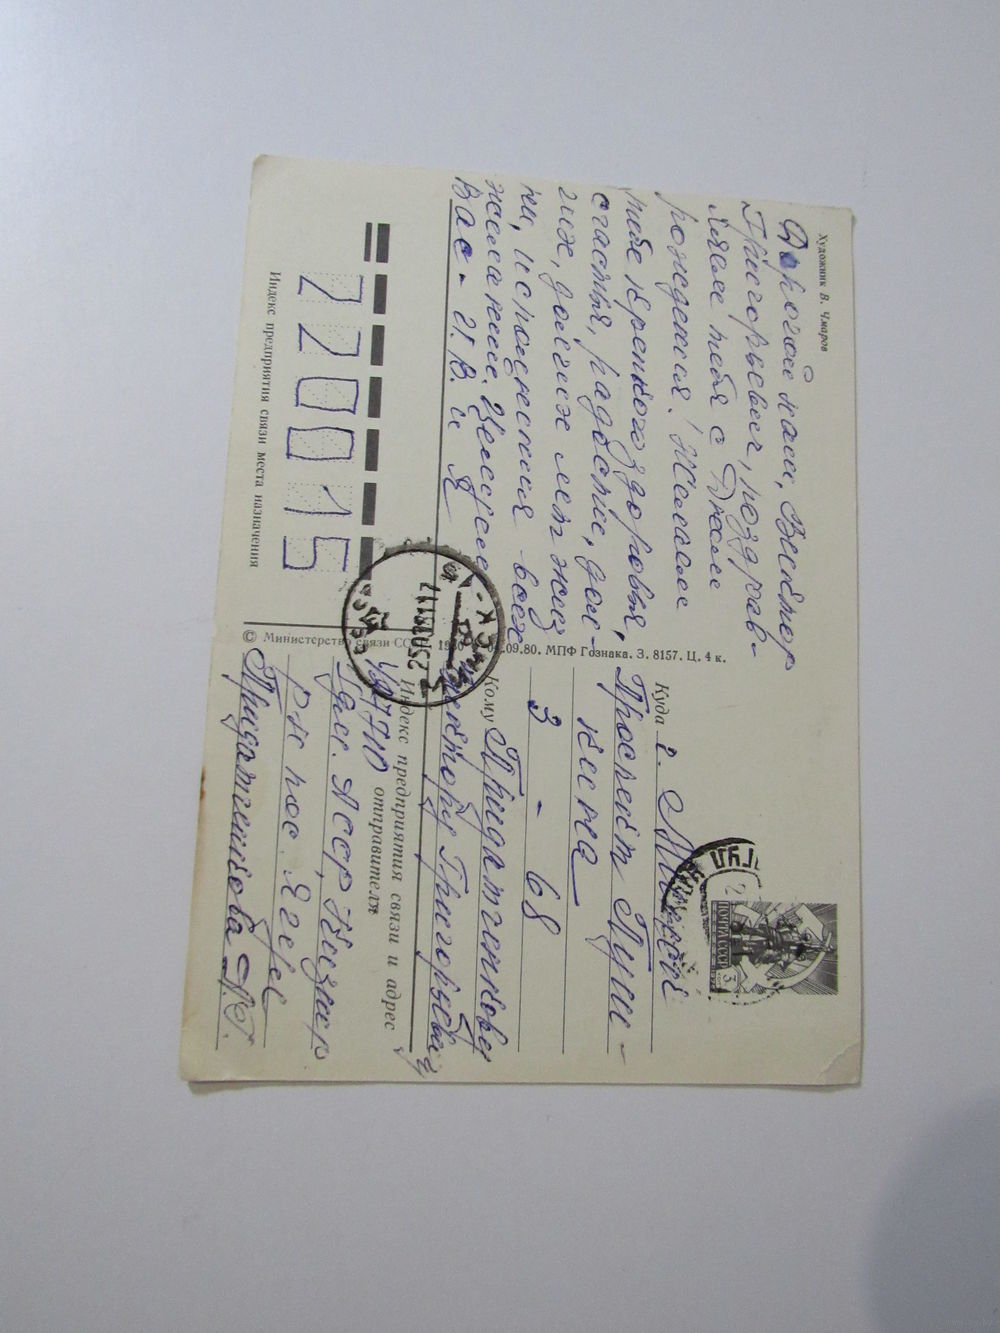 Художник В. Чмаров
Дорогой наш, Виктор
Григорьевич, поздрав-
ляем тебя с Днём
рождения! Желаем
тебе крепкого здоровья,
счастья, радости, дол-
гих, долгих лет жиз
ни, исполнения всех
желаний. Целуем
Вас - 21. В. и Я
Индекс предприятия связи места назначения
220015
© Министерство связи СССР, 1980 09.80. МПФ Гознака. З. 8157. Ц. 4 к.
ПОЧТА СССР
3
Куда г. Минск
Проспект Пуш-
кина
3 - 68
Кому Придатченкову
Виктору Григорьевичу
Индекс предприятия связи и адрес
отправителя
Удм. АССР, Кизнер
р-н пос. Ягул
Придатченкова